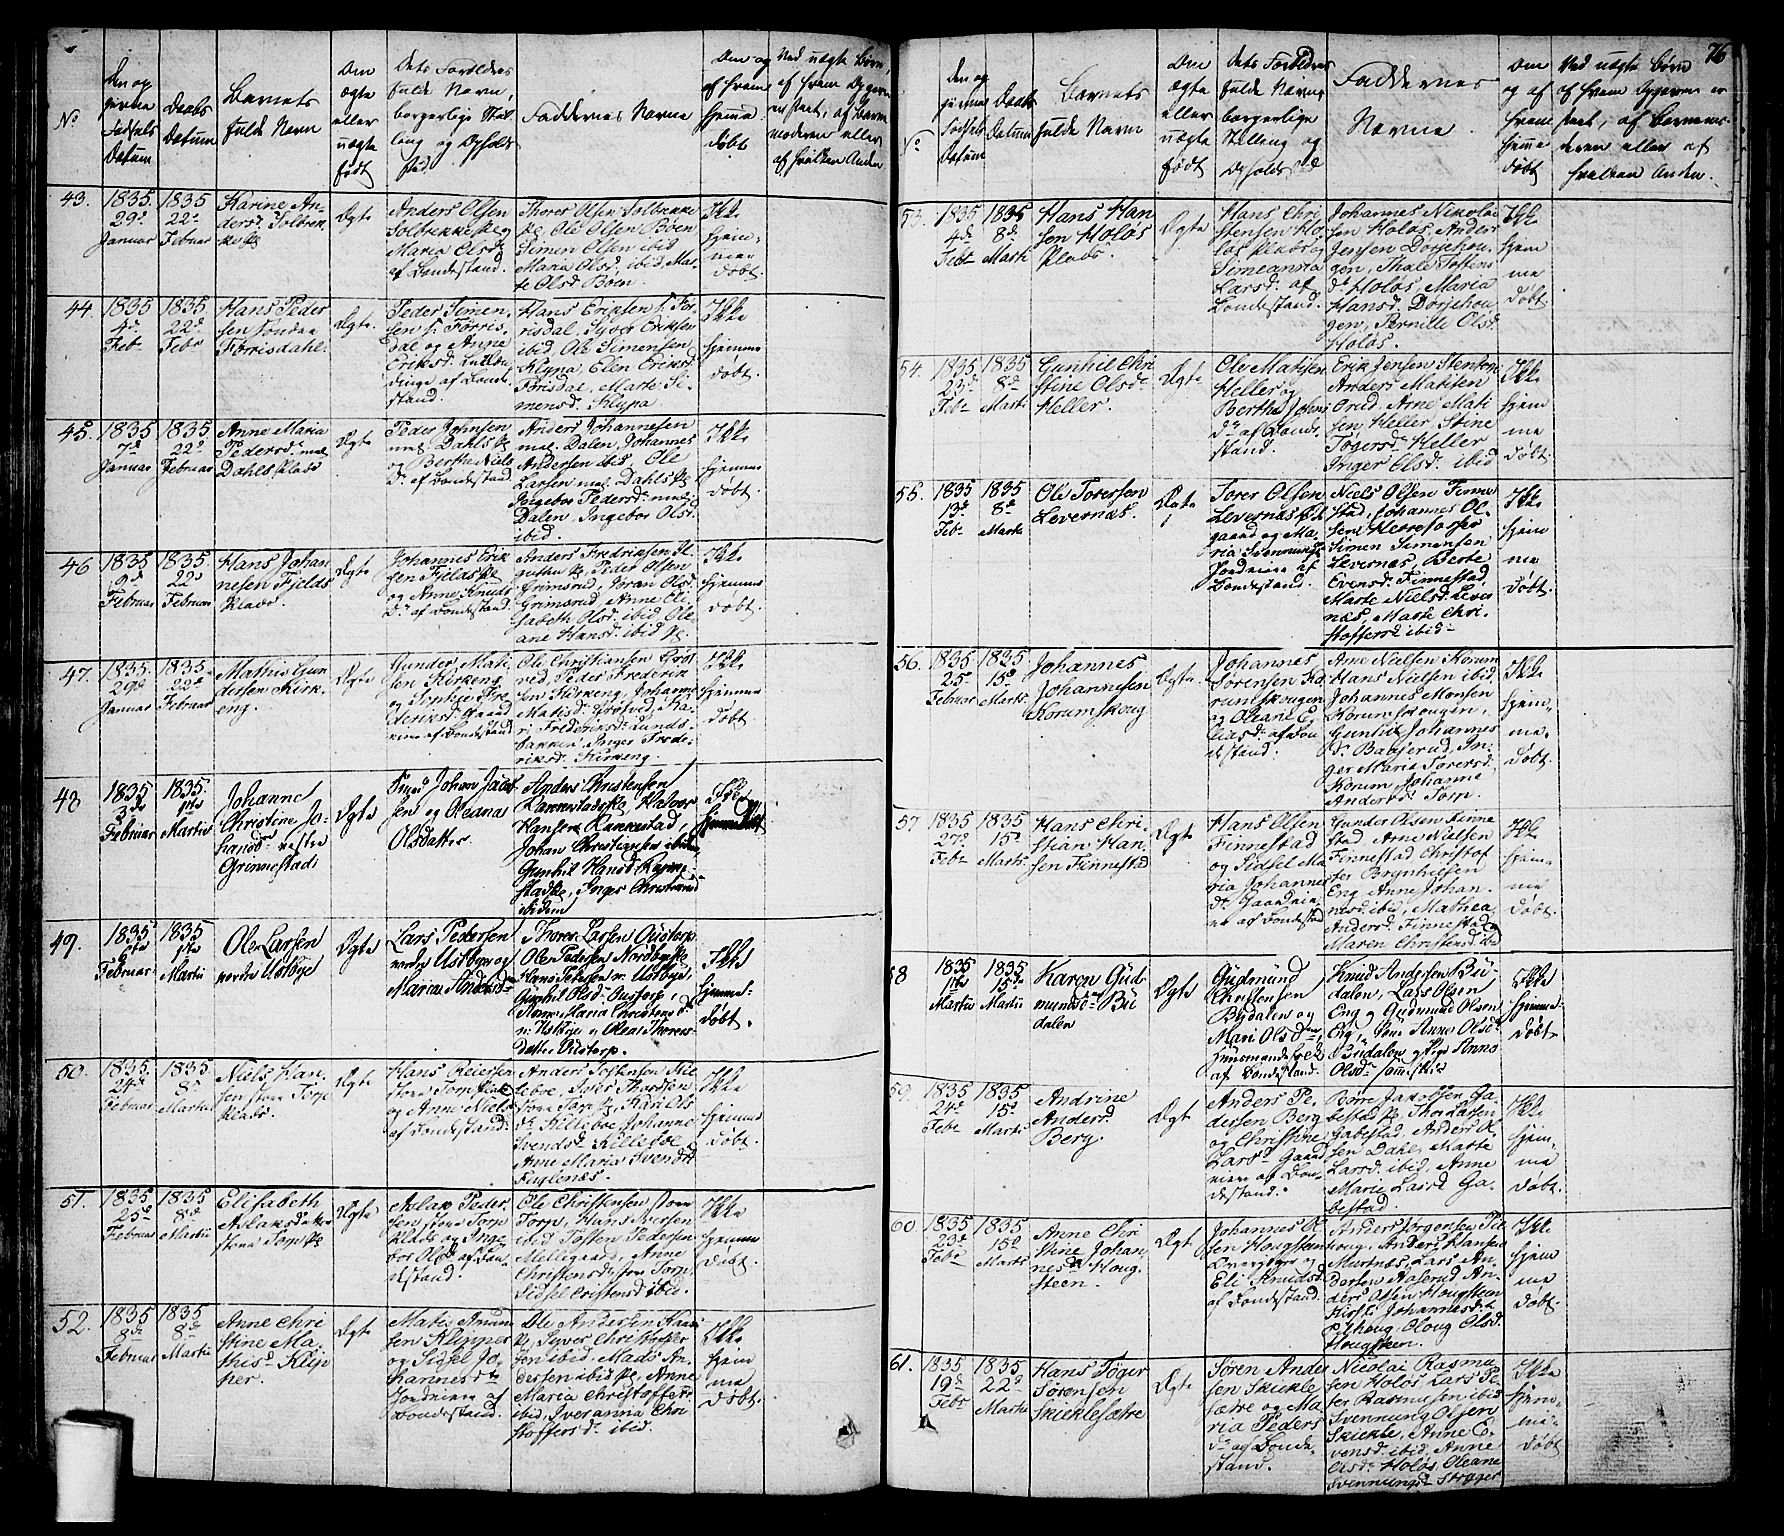 No
Den op
givne
Fødsels
Datum
Daabs
Datum
Barnets
fulde Navn
Om
ægte
eller
uægte
født
Dets Forældres
fulde Navn,
borgerlige Stil-
ling og Opholds
Sted
Faddernes Navne
Om og
af hvem
hjemme
døbt
Ved uægte Børn,
af hvem Opgaven
er skeet, af Barne
moderen eller
af hvilken Anden
43.
1835.
29d
Januar
1835
22d
Februar
Karine An-
dersd. Solbræk-
ke
Ægte
Anders Olsen
Solbrække
Maria Olsd.
af Bondestand.
Thorer Olsen Solbrække
Ole Olsen Boen
Simen Olsen ibid
Maria Olsd. ibid, Mar-
te Olsd. Boen
Ikke
hjem-
me
døbt.
44
1835
4d
Feb.
1835.
22d
Febr
Hans Peder
sen
Førrisdahl.
Ægte.
Peder Simen-
sen
Førris-
dal og Anne
Eriksd.
af Bonde-
stand.
Hans Eriksen
Før-
risdal, Syver Eriksen
ibid Ole Simensen
Klypa, Elen Eriksd.
Førisdal, Marte Si-
mensd. Klypa.
Ikke
hjemme
døbt.
45.
1835
7d
Januar
1835.
22d
Februar
Anne Maria
Pedersd.
Dahls Plads
Ægte
Peder Johnsen
Dahls
og Berthe Niels
d. af Bondestand
Anders Johannesen
Dalen, Johannes
Andersen ibid, Ole
Larsen
Dahls
Ingebor Pedersd.
Dalen, Ingebor Olsd.
ibid.
Ikke
hjemme
døbt.
46
1835
9d
Februar
1835.
22d
Februar
Hans Johan
nesen Fjelds
Plads.
Ægte
Johannes Erik
sen Fjelds
og Anne Knuds
d. af Bondestand
Anders Fredriksen
Peder Olsen
Grimsrud, Joran Olsd.
Grimsrud, Anne Eli-
sabeth Olsd. ibid, Ole
ane Hansd. ibid
Ikke
hjemme
døbt.
47.
1835.
29d
Januar
1835.
22d
Februar
Mathis Gun
dersen Kirk-
eng.
Ægte
Gunder Mati-
sen Kirkeng
og Sophie Fre
deriksd.
af Bondestand
Ole Christiansen
Peder Frederik
sen Kirkeng, Johanne
Matisd.
Frederiksd. Lunds-
bakken, Inger Frede-
riksd. Kirkeng.
Ikke
hjemme
døbt.
48
1835
3die
Februar
1835.
1ste
Martii
Johanne
Christine Jo-
hansd. nestre
Grimestad
Ægte
Johan Jacob
sen og Oleana
Olsdatter
Anders Christensen
Halvor
Hansen Rannestad,
Johan Christiansen ibidem
Gunhil Hansd.
Inger Christiansd.
ibidem
Ikke
hjemme døbt
49.
1835
6te
Februar
1835
1ste
Martii
Ole Larsen
nordre Ustbye
Ægte
Lars Pedersen
nordre Ustbye og
Maria Andersd.
Thorer Larsen Oustorp
Ole Pedersen Nordbye
Hans Pedersen n. Ustbye,
Gunhil Olsd. Oustorp
Maria Christensd.
n. Ustbye og Olea Thorers-
datter Oustorp.
Ikke
hjemme-
døbt.
50.
1835.
24d
Februar
1835
8d
Martii
Niels Han-
sen store Torp
Plads.
Ægte
Hans Reiersen
store Torp
og Anne Niels
d.
af Bondestand.
Anders Tostensen Kil-
leboe, Iver Thordsen
store Torp, Kari Ols
d. Killeboe, Johanne
Svendsd. Killeboe,
Anne Maria Svendsd.
Fuglenæs.
Ikke
hjemme
døbt.
51.
1835
25d
Februar
1835
8d
Martii
Elisabeth
Aslaksdatter
store Torp
Ægte
Aslak Peder-
sen store Torp
Plads og Inge
bor Olsd. af Bon-
destand.
Ole Christensen store
Torp, Hans Iversen
ibid Tosten Pedersen
Mellegaard, Anne
Christensd. store Torp,
Sidsel Cristensd. ibid.
Ikke
hjemme
døbt.
52.
1835
8d
Februar
1835
8d
Martii
Anne Chri
stine Ma-
thisd. Klyp
per.
Ægte
Matis Amun
sen Klypper
og Sidsel Jo-
hannesd.
af
Bondestand.
Ole Andersen
Syver Christoffer
sen ibid. Mads An-
dersen ibid, Anne
Maria Christoffersd.
ibid, Iveranna Chri
stoffersd. ibid.
Ikke
hjem
me
døbt.
76
No
Den op
givne
Fødsels
Datum
Daabs
Datum
Barnets
fulde Navn
Om
ægte
eller
uægte
født
Dets Forældres
fulde Navn,
borgerlige
Stilling og
Opholdssted
Faddernes
Navne.
Om
og af
hvem
hjemme
døbt
Ved uægte Børn
af hvem Opgaven er
skeet, af Barnemo-
deren eller af
hvilken Anden.
53.
1835
4d
Feb.
1835
8d
Marti
Hans Han
sen Holøs
Plads.
Ægte
Hans Chri
stensen Ho-
løs Plads og
Simeanna
Larsd. af
Bondestand.
Johannes Nikolai
sen Holøs, Anders
Jensen Dorjehou-
gen, Thale Tostens
d. Holøs, Maria
Hansd. Dorjehou
gen, Pernille Olsd.
Holøs.
Ikke
hjem
me
døbt.
54.
1835
23d
Feb.
1835
8d
Marti
Gunhil Chri
stine Olsd.
Heller.
Ægte
Ole Matisen
Heller og
Bertha Johns
d. af Bonde
stand.
Erik Jensen
Anders Matisen
Orud, Arne Mati
sen Heller, Stine
Tøgersd. Heller
Inger Olsd. ibid
Ikke
hjem
me
døbt.
55.
1835
13d
Feb.
1835
8d
Marti
Ole Torersen
Levernæs.
Ægte
Torer Olsen
Levernæs
og Ma-
ria Svennungsd.
af
Bondestand.
Niels Olsen Finne
stad, Johannes Ol-
sen Herrefosser
Simen Simensen
Levernæs, Berte
Evensd. Finnestad,
Marte Nielsd. Lever
næs, Marte Chri-
stoffersd. ibid.
Ikke
hjem
me
døbt.
56.
1835
25d
Februar
1835
15d
Marti
Johannes
Johannesen
Korumskoug
Ægte.
Johannes
Sørensen Ko-
rumskougen
og Oleane E-
liasd. af Bon
destand.
Arne Nielsen Korum
Hans Nielsen ibid.
Johannes Monsen
Korumskougen,
Gunhil Johannes
d. Baggerud, In-
ger Maria Torersd.
Korum, Johanne
Andersd. Torp.
Ikke
hjem-
me-
døbt.
57
1835
27d
Feb.
1835
15d
Marti
Hans Chri-
stian Han-
sen Finnestad
Ægte.
Hans Olsen
Finnestad
og Sidsel Ma-
ria Johannes
d. Gaardmæn
af Bondestand
Gunder Olsen Finne
stad, Arne Nielsen
Finnestad, Christof
fer Brynhilsen
Eng, Anne Johan-
nesd. ibid, Mathea
Andersd. Finnestad,
Maren Christensd. ibid
Ikke
hjem-
me
døbt.
58
1835
1ste
Martii
1835.
15de
Martii
Karen Gud-
mundsd. Bu
dalen
Ægte
Gudmund
Christensen
Budalen og
Mari Olsd.,
Huusmandsfolk
af Bondestand.
Knud Andersen Bu-
dalen, Lars Olsen
Eng, Gudmund Olsen
Eng, Anne Olsd.
Budalen, Pige Anne
Olsd. sammesteds
Ikke
hjemme-
døbt.
59.
1835
24d
Febr.
1835
15d
Marti
Andrine
Andersd
Berg.
Ægte
Anders Pe-
dersen Berg
og Christine
Larsd. Gaard
mæn af Bon-
destand.
Børre Jakobsen Ga-
bestad, Thor Larsen
Gabestad, Anders Ol
sen Dahl, Marte
Larsd. ibid, Anne
Marie Larsd. Ga-
bestad.
Ikke
hjem-
me
døbt.
60
1835
23d
Febr
1835
15d
Marti
Anne Chri
stine Johan
nesd. Houg
steen.
Ægte
Johannes Ol
sen Hougsteen
og
Eli Knudsd.
af Bondestand.
Anders Jørgensen
Anders Hansen
Murtnæs, Lars An-
dersen Aaserud, An-
ders Olsen Hougsteen
Kirsti Johannesd.
Oloug Olsd.
Hougsteen.
Ikke
hjem
me
døbt.
61.
1835
19d
Febr
1835
22d
Marti
Hans Tøger
Sørensen
Skieklesætre
Ægte
Søren Ander
sen Skiekle
sætre og Ma
ria Peders
d. af Bonde-
stand.
Nicolai Rasmu
sen Holøs, Lars Pe-
ter Rasmusen ibid
Svennung Olsen
Skiekle, Anne E-
vensd. ibid, Anne
Olsd. Holøs, Oleane
Svennungsd.
Ikke
hjem-
me-
døbt